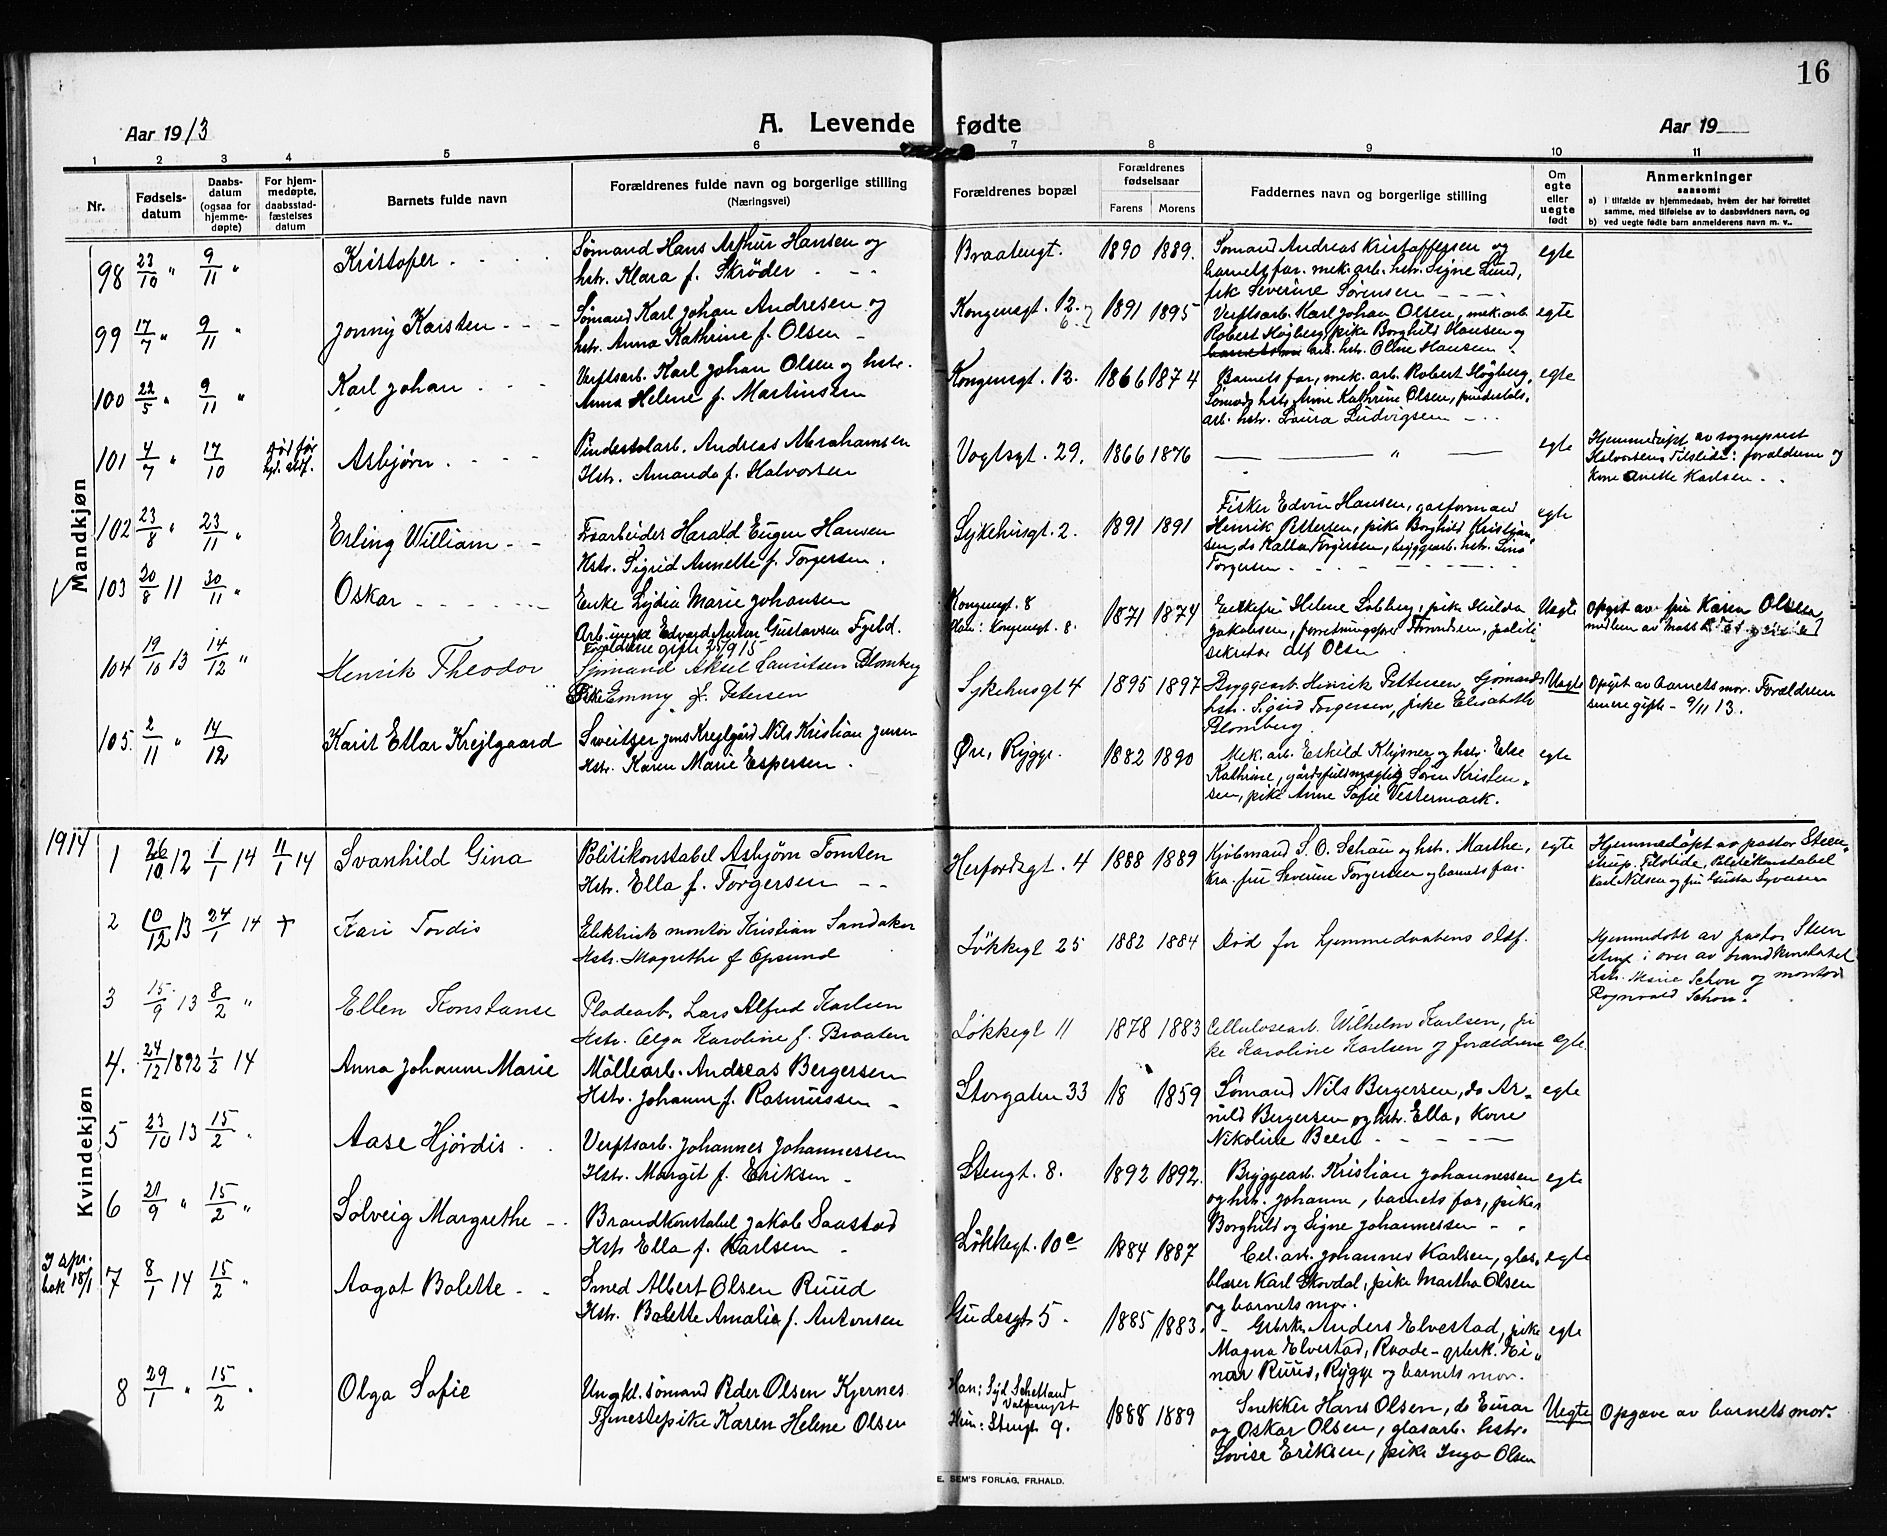 16
Aar 1913
A. Levende fødte
Aar 19
1 2 3 4 5 6 7 8 9 10 11
Nr.
Fødsels-
datum
Daabs-
datum
(ogsaa for
hjemme-
døpte)
For hjem-
medøpte,
daabsstad-
fæstelses
datum
Barnets fulde navn
Forældrenes fulde navn og borgerlige stilling
(Næringsvei)
Forældrenes bopæl
Forældrenes
fødselsaar
Farens Morens
Faddernes navn og borgerlige stilling
Om
egte
eller
uegte
født
Anmerkninger
saasom:
a) i tilfælde av hjemmedaab, hvem der har forrettet
samme, med tilføielse av to daabsvidners navn, og
b) ved uegte fødte barn anmelderens navn m. v..
Mandkjøn
98 23/10 " 9/11 "
Kristofer
Sømand Hans Arthur Hansen og
hstr. Klara f. Skrøder
Braatengt.
1890 1889.
Sømand Andreas Kristoffersen og
barnets far. mek. arb. hstr. Signe Lund,
pik Severine Sørensen
egte
99 17/7 " 9/11 "
Jonny Karsten
Sømand Karl Johan Andresen og
hstr. Anna Kathrine f. Olsen
Kongensgt. 12.
1891 1895
Verftsarb. Karl Johan Olsen, mek. arb.
Robert Høgberg, pike Borghild Hansen og
arb. hstr. Oline Hansen
egte
100 22/5 " 9/11 "
Karl Johan
Verftsarb. Karl Johan Olsen og hstr.
Anna Helene f. Martinsen
Kongensgt. 12.
1866 1874
Barnets far, mek. arb. Robert Høgberg,
Sømands hstr. Anne Kathrine Olsen, pindestols-
arb. hstr. Laura Ludvigsen
egte
101 4/7 " 17/10
død før
Asbjørn
Pindestolarb. Andreas Abrahamsen
Hstr. Amanda f. Halvorsen
Vogtsgt. 29.
1866 1876
"
egte
Hjemmedøpt av sogneprest
Halvorsen. Tilstede: forældrene og
kone Anette Karlsen
102 23/8 " 23/11 "
Erling William
Isarbeider Harald Eugen Hansen
Hstr. Sigrid Annette f. Torgersen.
Sykehusgt. 2.
1891 1891
Fisker Edvin Hansen, gasformand
Henrik Pettersen, pike Borghild Kristjan-
sen, do Kalla Torgersen, bryggearb. hstr. Lina
Torgersen
egte
103 20/8 11 30/11 "
Oskar
Enke Lydia Marie Johansen
Arb. ungk. Edvard Anton Gustavsen Fjeld.
Forældrene gifte 25/9 15
Kongensgt. 8
Han: Kongensgt. 8.
1871 1874
Enkefru Helene Solberg, pike Hulda
Jakobsen, Thrudsen, politi-
sekretær Alf Olsen
Uegte
Opgit av fru Karen Olsen
104 19/10 13 14/12 "
Henrik Theodor
Sjømand Aksel Lauritsen Blomberg
Pike Emmy f. Petersen
Sykehusgt 4
1895 1897
Bryggearb. Henrik Pettersen, Sjømands
hstr. Sigrid Torgersen, pike Elisabeth
Blomberg
Uegte
Opgit av barnets mor. Forældrene
senere gifte - 9/11 13.
105. 2/11 " 14/12
Karit Ellar Krejlgaard
Sveitser Jens Krejlgård Nils Kristian Jensen
Hstr. Karen Marie Espersen.
Øre, Rygge.
1882 1890
Mek. arb. Eskild Klysner og hstr. Else
Kathrine, gårdsfuldmægtig Søren Kristen-
sen, pike Anne Sofie Vestermark.
egte
1914
Kvindekjøn
1 26/10 12 1/1 14 11/1 14
Svanhild Gina
Politikonstabel Asbjørn Tomten
Hstr. Ella f. Torgersen
Herfordsgt. 4
1888 1889
Kjøbmand S. O. Schau og hstr. Marthe,
fru Severine Torgersen og barnets far.
egte
Hjemmedøpt av pastor Steen-
strup. Tilstede, Politikonstabel
Karl Nilsen og fru Gusta Syversen
2 10/12 13 24/1 14 +
Kari Tordis
Elektrisk montør Kristian Sandaker
Hstr. Magrethe f Opsund
Løkkegt 25
1882 1884
Død før hjemmedaabens stadf.
Hjemmedøbt av pastor Steen
strup i over av brandkonstabel
hstr. Marie Schou og montør
Rognvald Schou.
3 15/9 13 8/2 "
Ellen Konstanse
Pladearb. Lars Alfred Karlsen
Hstr. Olga Karoline f. Braaten
Løkkegt 11
1878 1883
Cellulosearb. Wilhelm Karlsen, pi
ke Karoline Karlsen og forældrene
egte.
4. 24/12 1892 1/2 14
Anna Johanne Marie
Møllearb. Andreas Bergersen
Hstr. Johanne f. Rasmussen
Storgaten 33
18 1859
Sømand Nils Bergersen, do Ar-
nild Bergersen og hstr. Ella, Kone
Nikoline Been
egte
5 23/10 13 15/2 "
Aase Hjørdis
Verftsarb. Johannes Johannessen
Hstr. Margit f. Eriksen
Stengt. 8.
1892 1892.
Bryggearb. Kristian Johannessen
og hstr. Johanne, barnets far, piker
Borghild og Signe Johannessen
egte
6 21/9 " 15/2 "
Solveig Margrethe
Brandkonstabel Jakob Saastad
Hstr Ella f. Karlsen
Løkkegt. 10c
1884 1887
Cel. arb. Johannes Karlsen, glas-
blæser Karl Skovdal, pike Martha Olsen
og barnets mor.
egte
7 8/1 14 15/2 "
Aagot Bolette
Smed Albert Olsen Ruud
Hstr. Bolette Amalie f. Antonsen
Gudesgt 5.
1885 1883.
Grbrk. Anders Elvestad, pike
Magna Elvestad, Raade - grbrk. Ei-
nar Ruud, Rygge og barnets mor.
egte
8 29/1 " 15/2 "
Olga Sofie
Ungkl. sømand Peder Olsen Kjernes
Tjenestepike Karen Helene Olsen
Han: Syd Schetland
Hun: Stengt 9.
1888 1889
Snekker Hans Olsen, do Einar
og Oskar Olsen, glasarb. hstr.
Lovise Eriksen, pike Inga Olsen
Uegte
Opgave av barnets mor.
E. SEM'S FORLAG, FR.HALD.